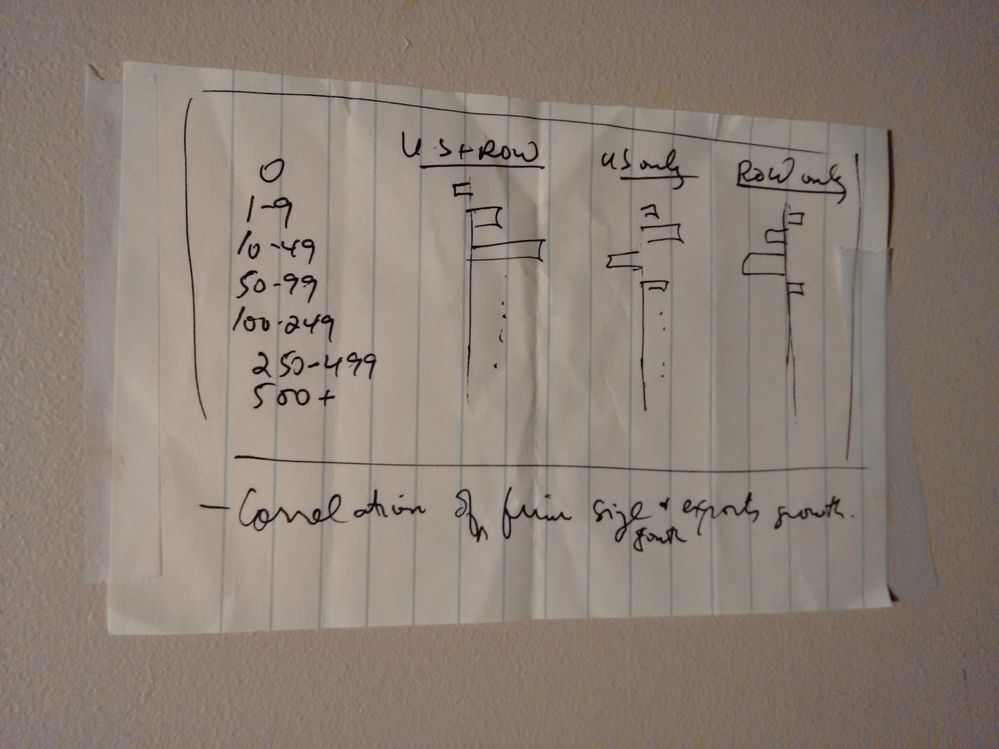 US+ROW US only ROW only
0
1-9
10-49
50-99
100-249
250-499
500+
- Correlation of firm size & exports growth.
growth